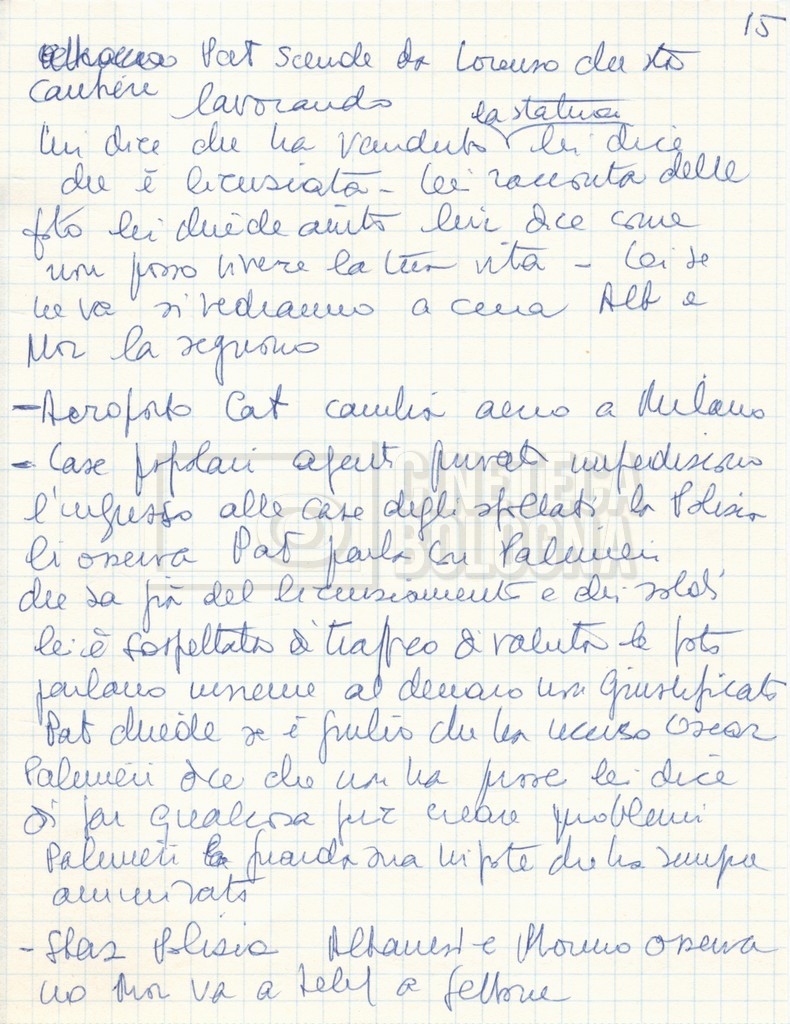 15
Pat scende da Lorenzo che sta
cantiere lavorando
la statua
lui dice che ha venduto lei dice
che è licenziata - lei racconta delle
foto lei chiede aiuto lui dice come
non posso vivere la tua vita - lei se
ne va si vedranno a cena Alb e
Mor la seguono
- Aeroporto Cat cambia aereo a Milano
- Case popolari agenti privati impediscono
l'ingresso alle case degli sfollati la Polizia
li osserva Pat parla con Palmieri
che sa già del licenziamento e dei soldi
lei è sospettata di traffico di valuta le foto
parlano insieme al denaro non giustificato
Pat chiede se è Giulio che ha ucciso Oscar
Palmieri dice che non ha prove lei dice
di far qualcosa per creare problemi
Palmieri guarda sua nipote che ha sempre
ammirato
- Staz Polizia Albanesi e Moreno osserva
no Mor va a telef a gettone
CINETECA
BOLOGNA